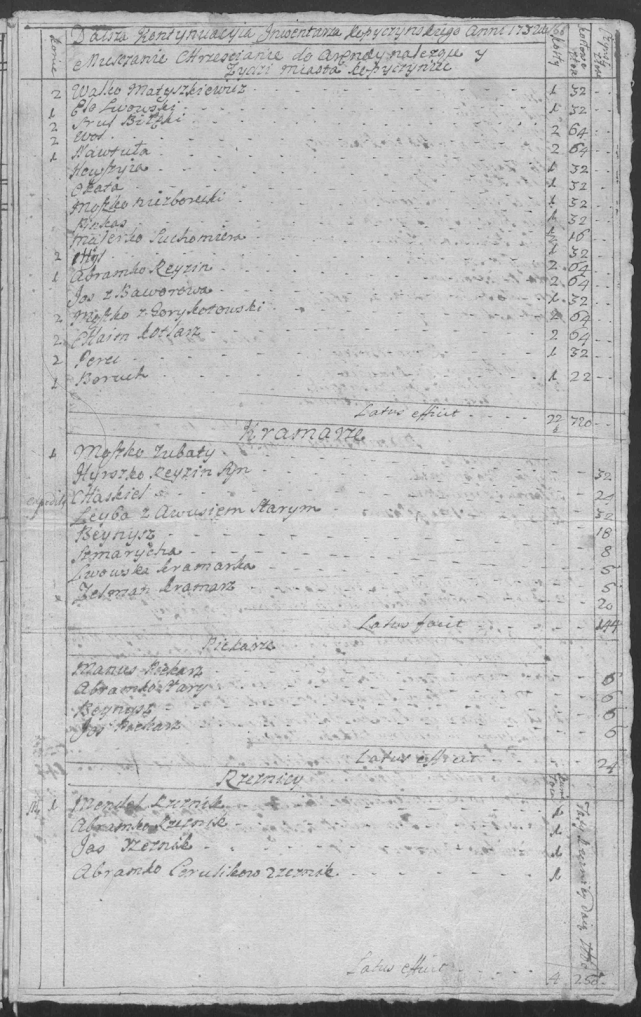 Dalsza Kontynuacyia Inwentarza Kopyczynskiego Anni 1732
Mieszczanie Chrzescianie do Arendy nalezący y
Żydzi miasta Kopyczyniec
Konie
2 Walko Matyszkiewicz 1 32
1 Elo Lwowski 1 32
2 Srul Bilski
2 Wol 2 64
1 Nawtuła 2 64
Howszyia 1 32
Chata 1 32
Moszko Niezborecki 1 32
Pinkas 1 32
Maierko Suchomiera 16
2 Hys 1 32
1 Abramko Reyzin 2 64
Jos z Baworowa 2 64
2 Moszko z Gorykotowski 1 32
2 Chaim Kotlarz 2 64
2 Perec 2 64
1 Boruch 1 32
1 22
Latus efficit 22 720
Kramarze
1 Moszko Zubaty
Hyrszko Reyzin Syn 32
Chaskiel 24
Leyba z Awusiem Starym 32
Beynysz 18
Szmarycha 8
Lwowska Kramarka 5
Zelman Kramarz 5
20
Latus facit 144
Piekarze
Manus Piekarz 6
Abramko Stary 6
Beynysz 6
Jos Piekarz 6
Latus efficit 24
Rzeznicy
1 Mendel Rzeznik 1
Abramko Rzeznik 1
Jos Rzeznik 1
Abramko Srulikow Rzeznik 1
Latus efficit 4 256